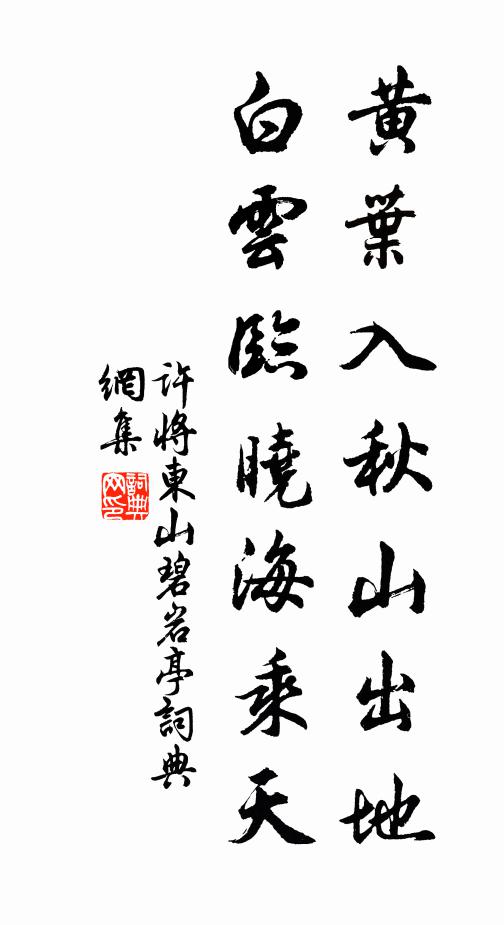 黃葉入秋山出地
白雲臨曉海乘天
許將東山碧岩亭詞典
網集
詞典
网印